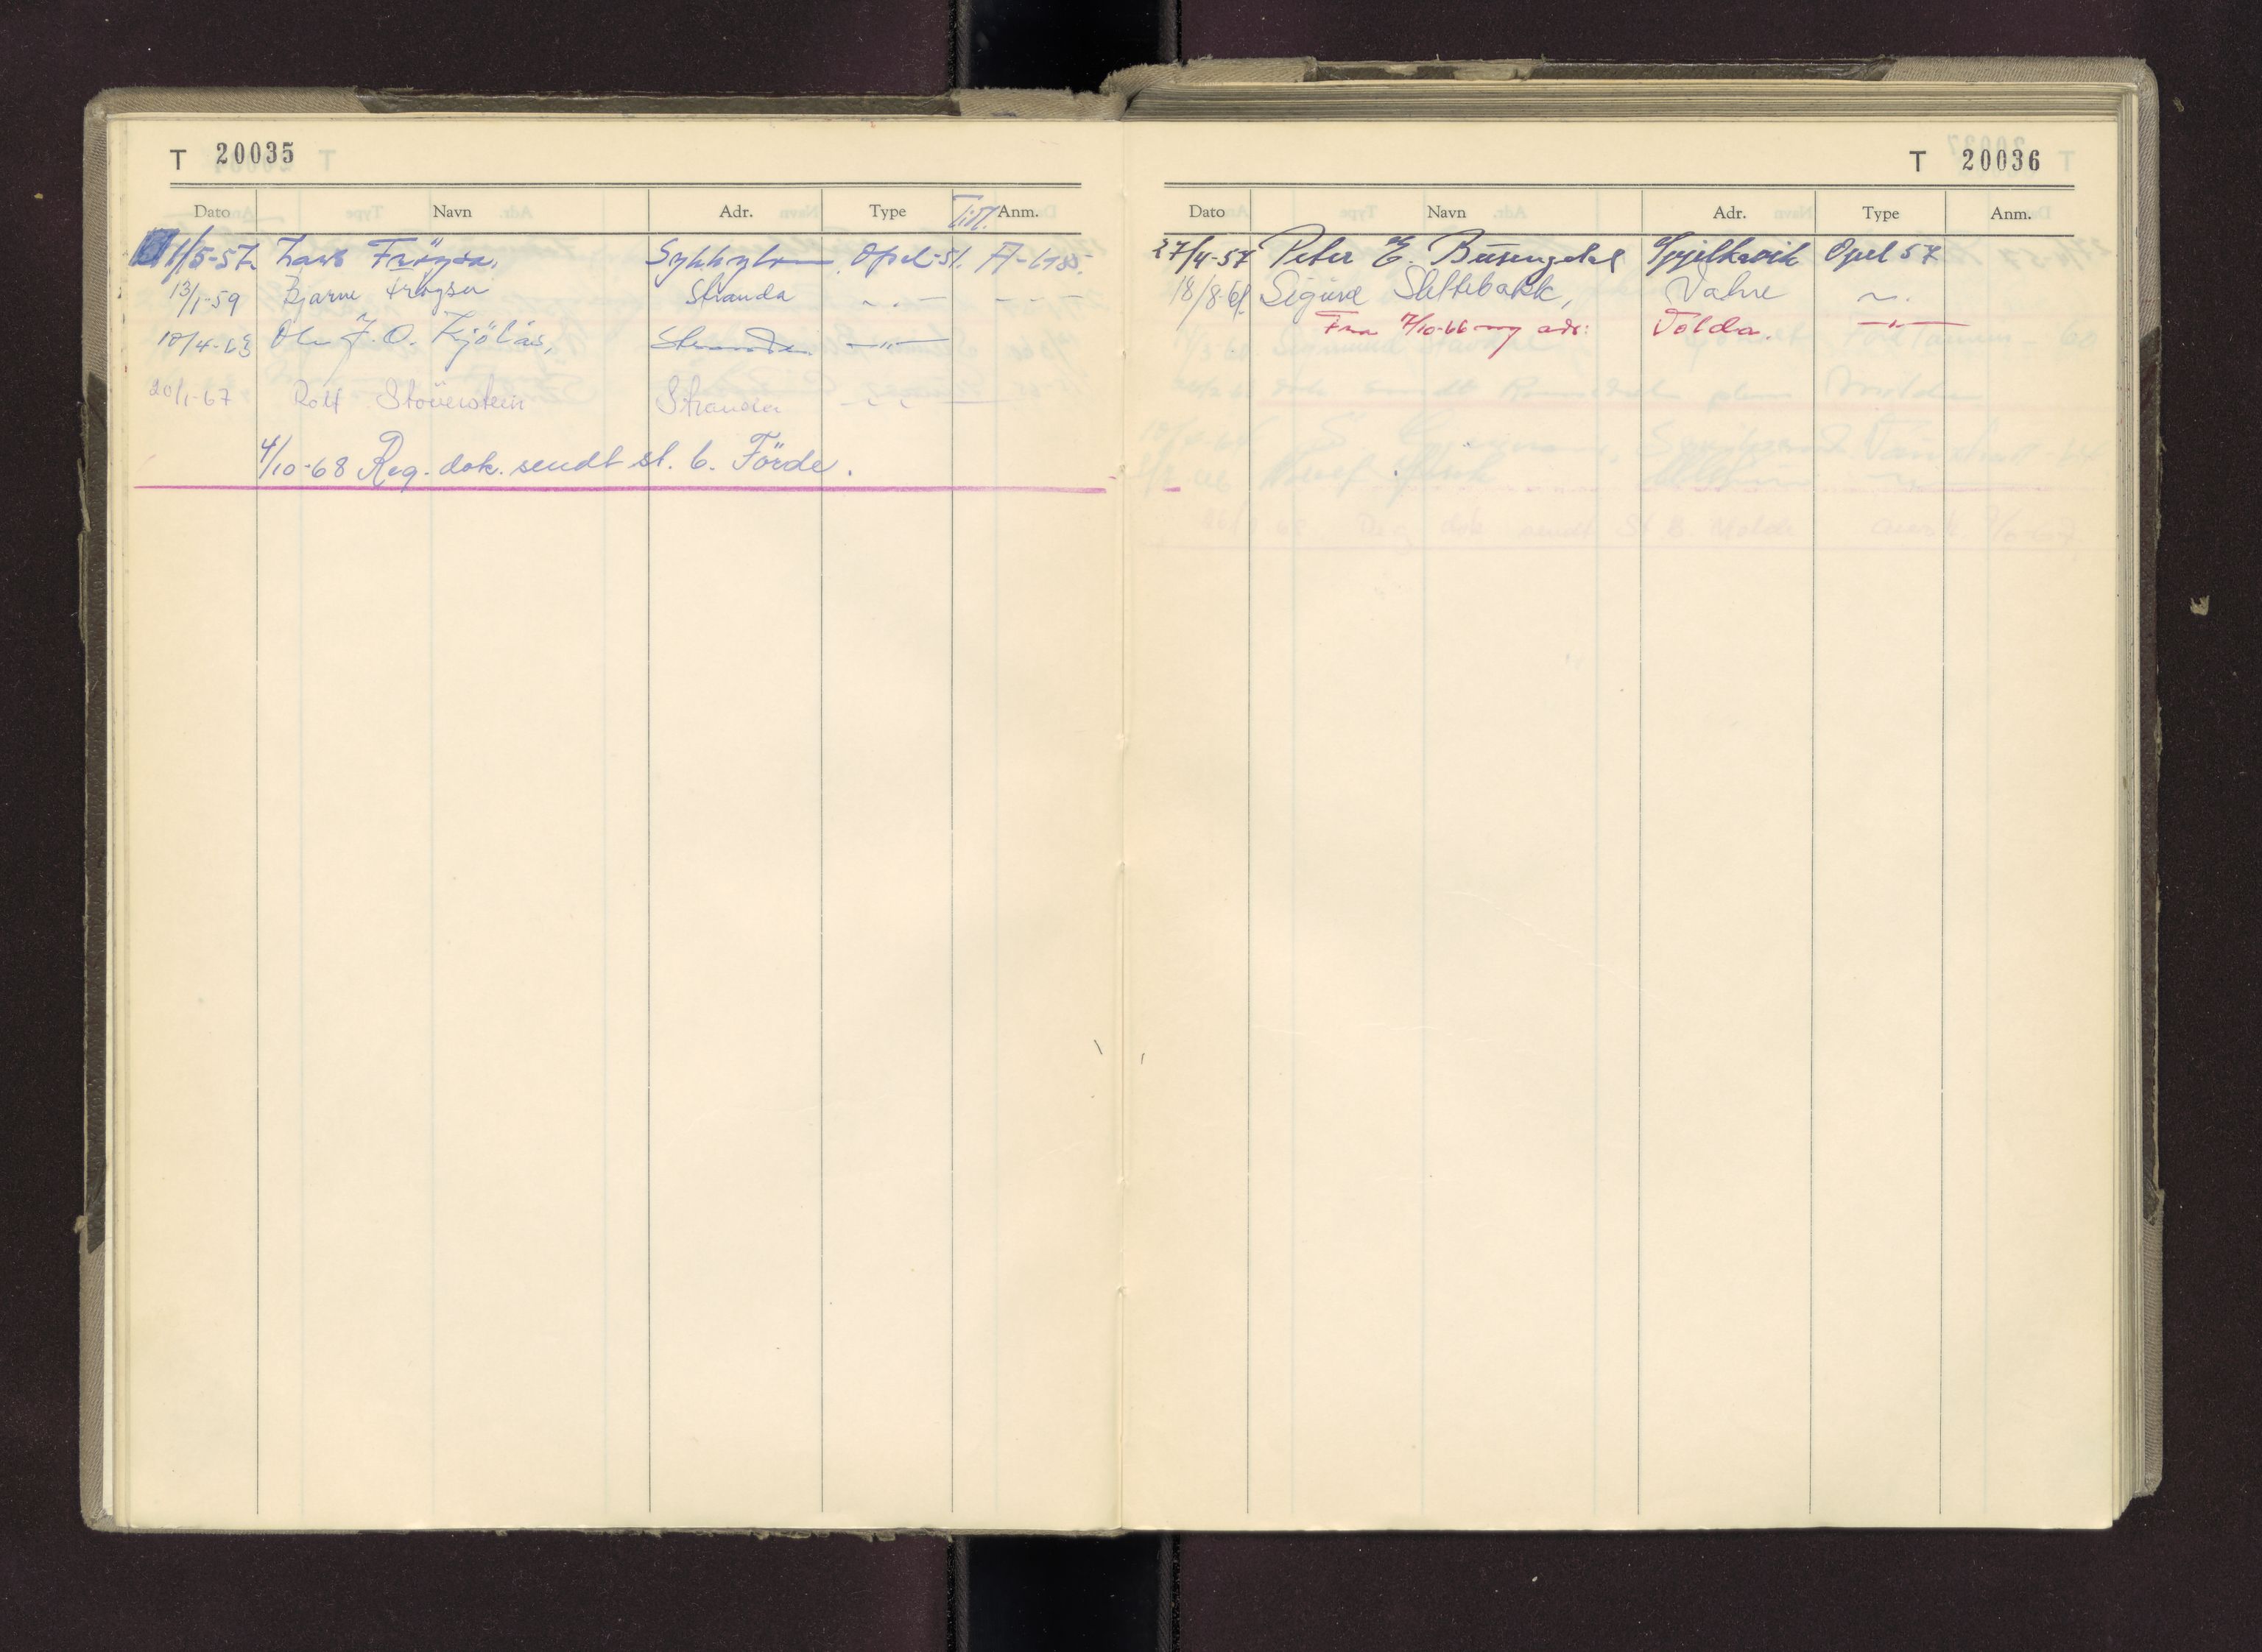 T 20035
Dato Navn Adr. Type Anm.
Till.
1/5-57. Lars Fröysa, Sykkylven Opel-51.
13/1-59 Bjarne Frøysa Stranda - " -
18/4-63 Ole J. O. Kjölås, Stranda - " -
20/1-67 Rolf Stöverstein Stranda - " -
4/10-68 Reg. dok. sendt st. b. Förde.
T 20036
Dato Navn Adr. Type Anm.
27/4-57 Peter E. Busengdal Gjelkavik Opel 57
18/8-61. Sigurd Slettebakk, Vatne - " -
Fra 7/10-66 ny adr: Volda. - " -